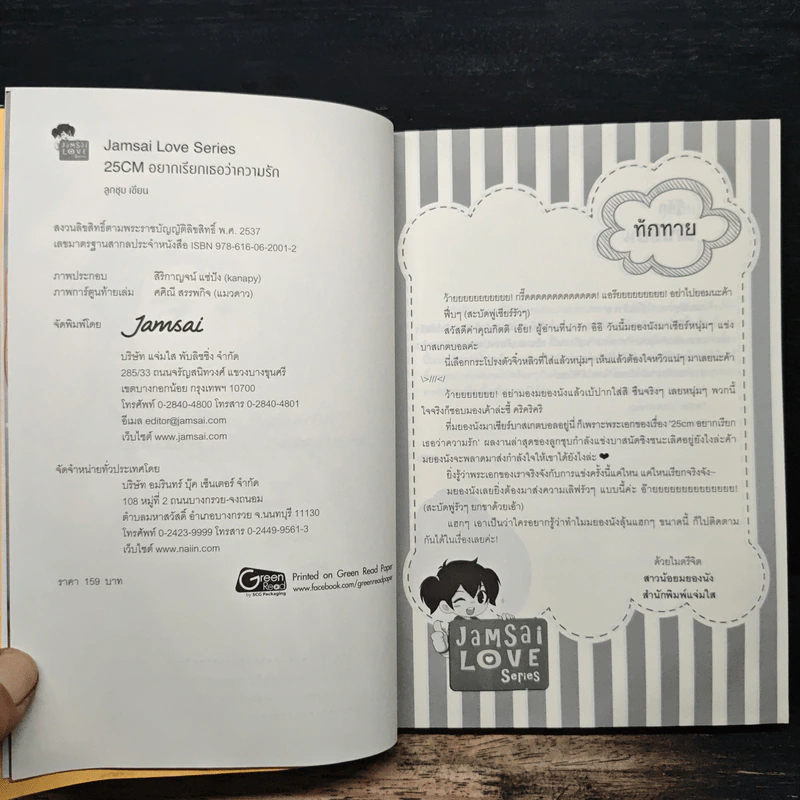 JAMSAI
LOVE
Series
Jamsai Love Series
25CM อยากเรียกเธอว่าความรัก
ลูกชุบ เขียน
สงวนลิขสิทธิ์ตามพระราชบัญญัติลิขสิทธิ์ พ.ศ. 2537
เลขมาตรฐานสากลประจำหนังสือ ISBN 978-616-06-2001-2
ภาพประกอบ สิริกาญจน์ แซ่ปัง (kanapy)
ภาพการ์ตูนท้ายเล่ม ศศิณี สรรพกิจ (แมวดาว)
จัดพิมพ์โดย Jamsai
บริษัท แจ่มใส พับลิชชิ่ง จำกัด
285/33 ถนนจรัญสนิทวงศ์ แขวงบางขุนศรี
เขตบางกอกน้อย กรุงเทพฯ 10700
โทรศัพท์ 0-2840-4800 โทรสาร 0-2840-4801
อีเมล editor@jamsai.com
เว็บไซต์ www.jamsai.com
จัดจำหน่ายทั่วประเทศโดย
บริษัท อมรินทร์ บุ๊ค เซ็นเตอร์ จำกัด
108 หมู่ที่ 2 ถนนบางกรวย-จงถนอม
ตำบลมหาสวัสดิ์ อำเภอบางกรวย จ.นนทบุรี 11130
โทรศัพท์ 0-2423-9999 โทรสาร 0-2449-9561-3
เว็บไซต์ www.naiin.com
ราคา 159 บาท
Green
Read
by SCG Packaging
Printed on Green Read Paper
www.facebook.com/greenreadpaper
ทักทาย
ว้ายยยยยยยยยยย! กรี๊ดดดดดดดดดดดดด! แอร๊ยยยยยยยยย! อย่าไปยอมนะค้า
ฟึ่บๆ (สะบัดพู่เชียร์รัวๆ)
สวัสดีค่าคุณกิตติ เอ๊ย! ผู้อ่านที่น่ารัก อิอิ วันนี้มยองนังมาเชียร์หนุ่มๆ แข่ง
บาสเกตบอลค่ะ
นี่เลือกกระโปรงตัวจิ๋วหลิวที่ใส่แล้วหนุ่มๆ เห็นแล้วต้องใจหวิวแน่ๆ มาเลยนะค้า
\>///</
ว้ายยยยยยย! อย่ามองมยองนังแล้วเบ้ปากใส่สิ ชีนจริงๆ เลยหนุ่มๆ พวกนี้
ใจจริงก็ชอบมองเค้าล่ะซี้ คริคริคริ
ที่มยองนังมาเชียร์บาสเกตบอลอยู่นี่ ก็เพราะพระเอกของเรื่อง '25cm อยากเรียก
เธอว่าความรัก' ผลงานล่าสุดของลูกชุบกำลังแข่งบาสนัดชิงชนะเลิศอยู่ยังไงล่ะค้า
มยองนังจะพลาดมาส่งกำลังใจให้เขาได้ยังไงล่ะ ❤
ยิ่งรู้ว่าพระเอกของเราจริงจังกับการแข่งครั้งนี้แค่ไหน แค่ไหนเรียกจริงจัง~
มยองนังเลยยิ่งต้องมาส่งความเลิฟรัวๆ แบบนี้ค่ะ อ๊ายยยยยยยยยยยยยย!
(สะบัดพู่รัวๆ ยกขาด้วยเอ้า)
แฮกๆ เอาเป็นว่าใครอยากรู้ว่าทำไมมยองนังลุ้นแฮกๆ ขนาดนี้ ก็ไปติดตาม
กันได้ในเรื่องเลยค่ะ!
ด้วยไมตรีจิต
สาวน้อยมยองนัง
สำนักพิมพ์แจ่มใส
JAMSAI
LOVE
Series